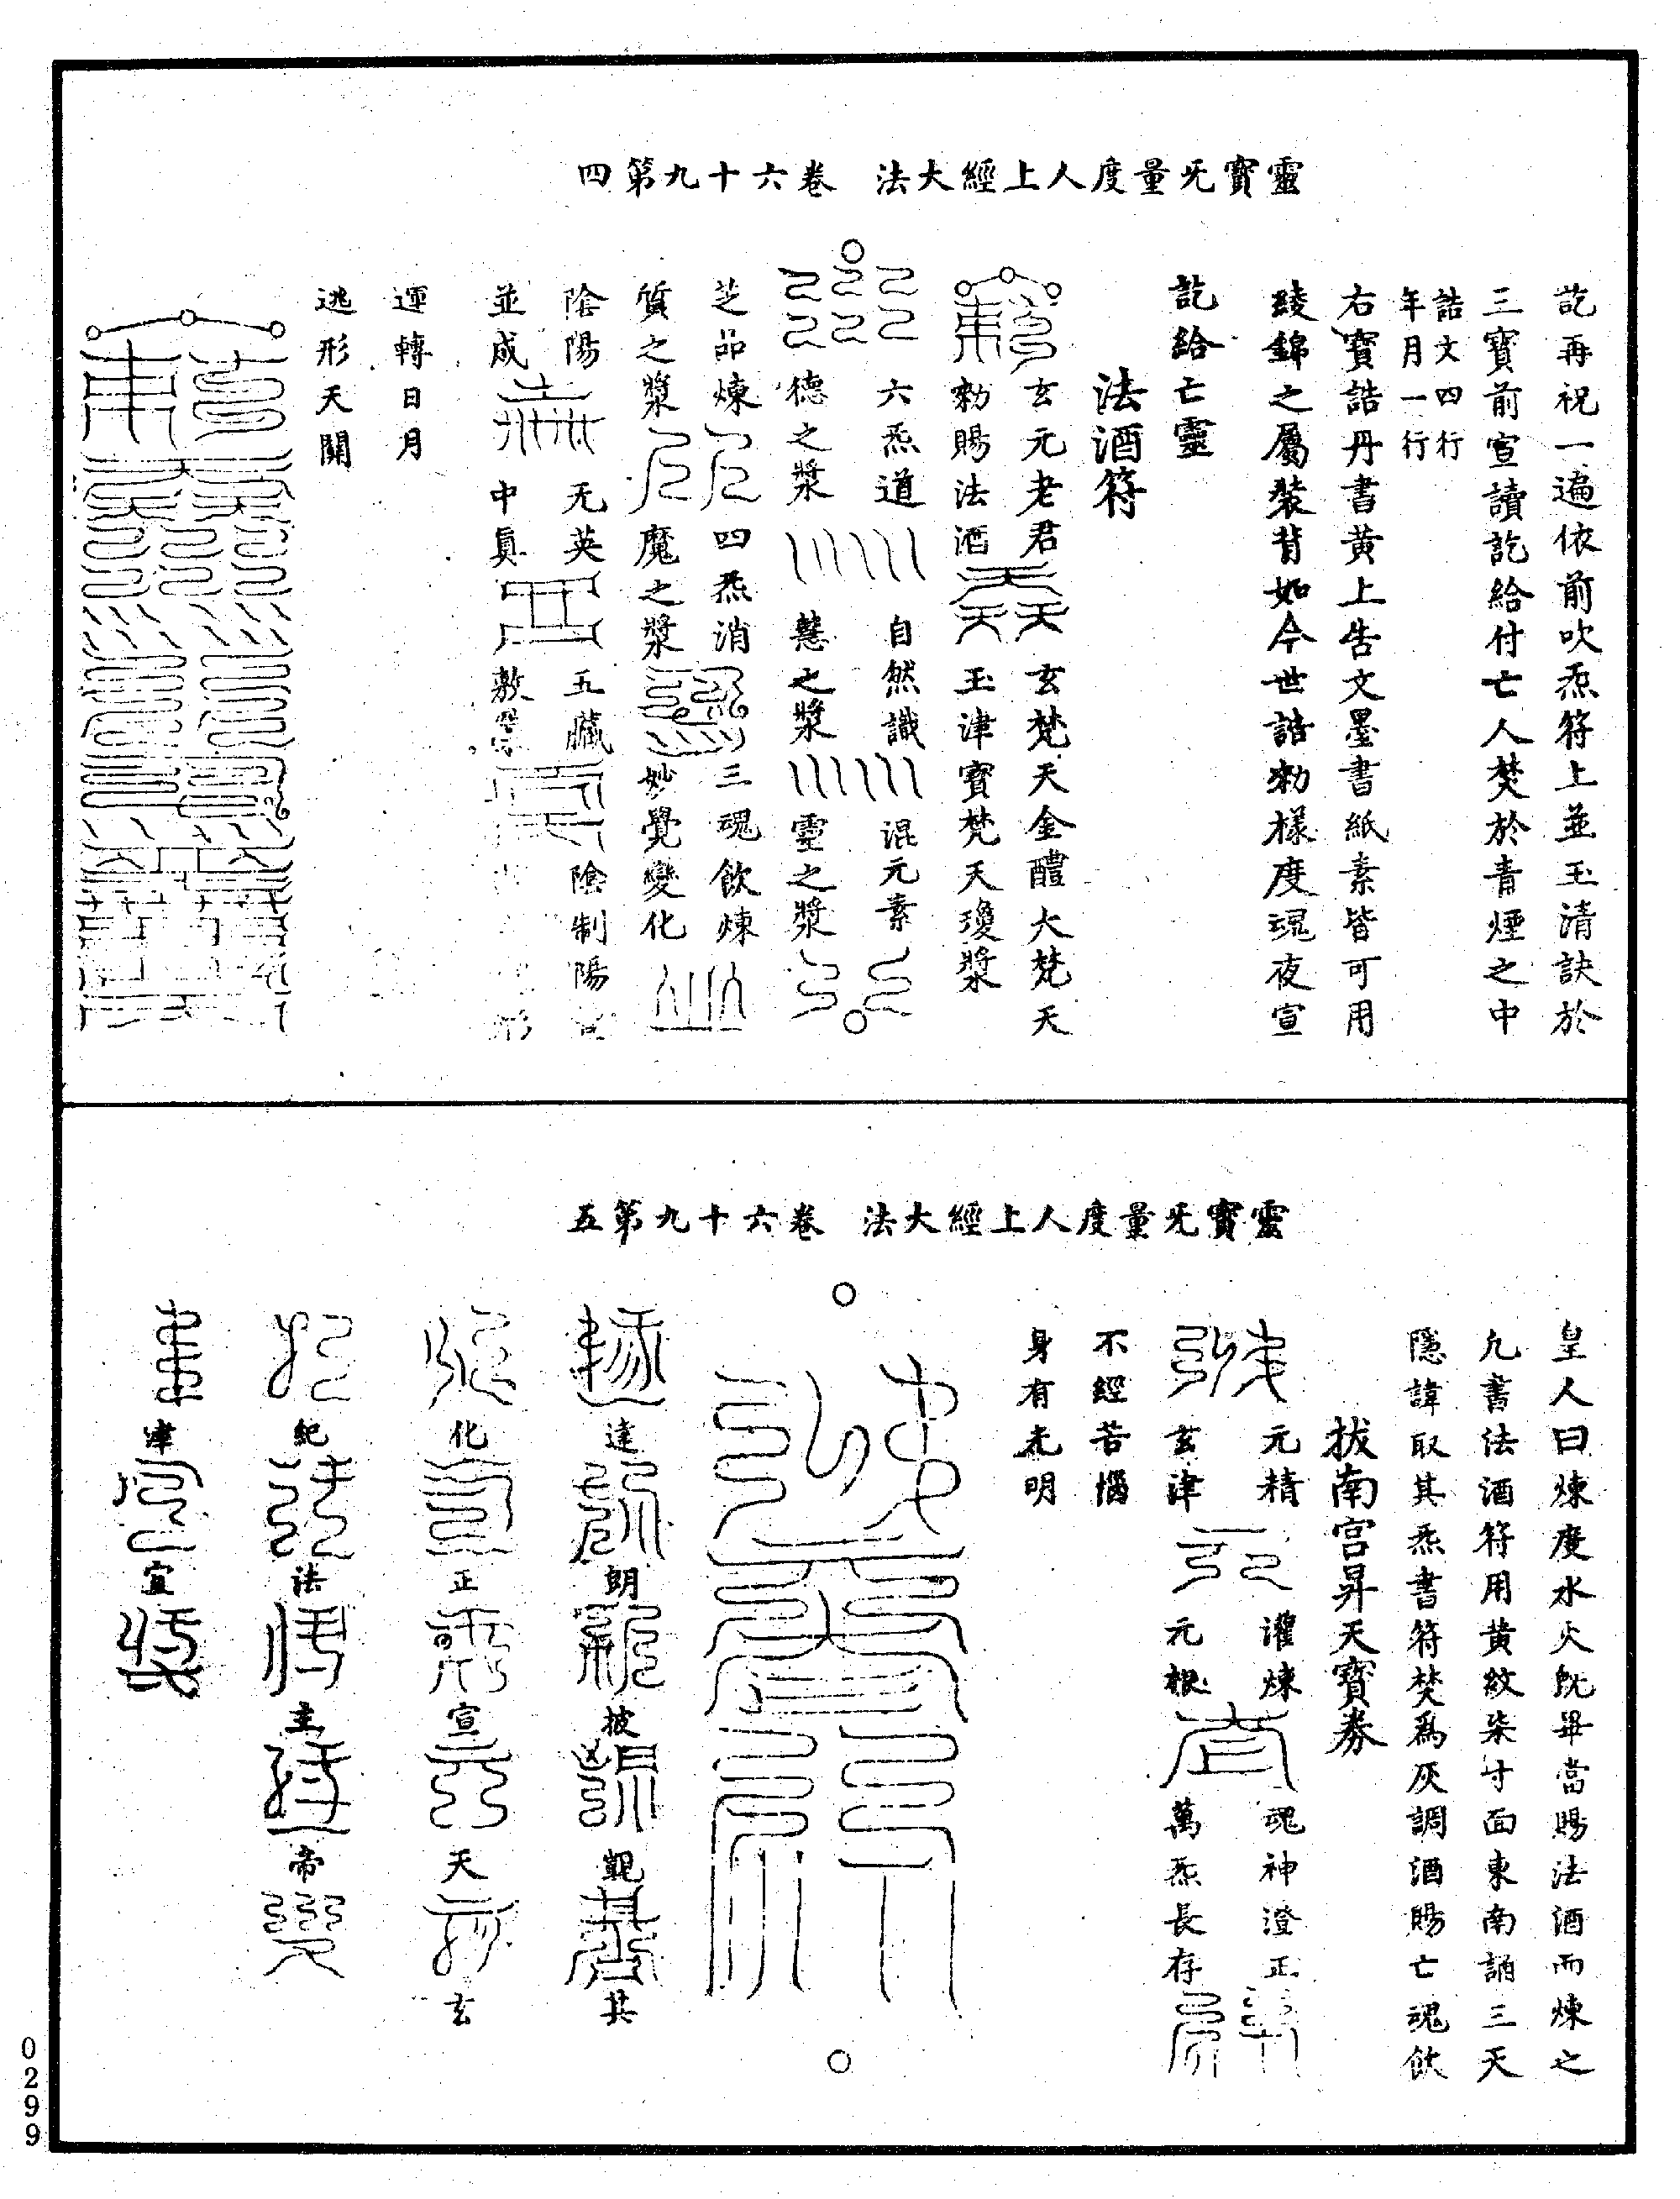 靈寶旡量度人上經大法　卷六十九第四
訖再祝一遍依前吹炁符上並玉清訣於
三寶前宣讀訖給付亡人焚於青煙之中
誥文四行
年月一行
右寶誥丹書黃上告文墨書紙素皆可用
綾錦之屬裝背如今世誥勑樣度魂夜宣
訖給亡靈
法酒符
玄元老君 玄梵天金醴大梵天
勑賜法酒 玉津寶梵天瓊漿
六炁道 自然識 混元素
德之漿 慧之漿 靈之漿
芝品煉 四炁消 三魂飲煉
質之漿 魔之漿 妙覺變化
陰陽 无英 五臟 陰制陽
並成 中眞 敷
運轉日月
逃形天關
靈寶旡量度人上經大法　卷六十九第五
皇人曰煉度水火旣畢當賜法酒而煉之
凢書法酒符用黃紋柒寸面東南誦三天
隱諱取其炁書符焚爲灰調酒賜亡魂飲
拔南宮昇天寶券
元精 灌煉 魂神澄正
玄津 元根 萬炁長存
不經苦惱
身有光明
達 朗 披 觀 其
化 正 宣 天 玄
紀 法 主 帝
宣
0299